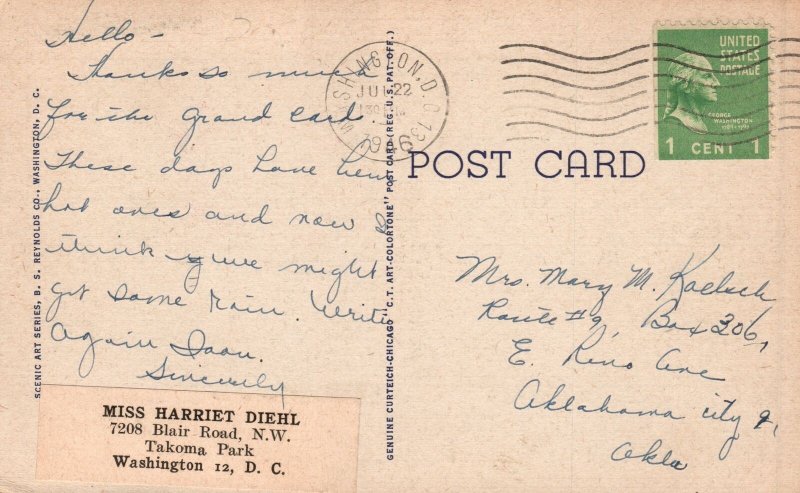 Hello -
Thanks so much
for the grand card
These days have been
hot ones and now I
think we might
get some rain. Write
again soon.
Sincerely
MISS HARRIET DIEHL
7208 Blair Road, N.W.
Takoma Park
Washington 12, D. C.
SCENIC ART SERIES, B. S. REYNOLDS CO., WASHINGTON, D. C.
GENUINE CURTEICH-CHICAGO "C.T. ART-COLORTONE" POST CARD (REG. U.S. PAT. OFF.)
WASHINGTON, D.C. 13
JUL 22
1946
POST CARD
UNITED
STATES
POSTAGE
GEORGE
WASHINGTON
1 CENT 1
Mrs. Mary M. Koelsch
Route #9, Box 306,
E. Reno Ave
Oklahoma City 9,
Okla